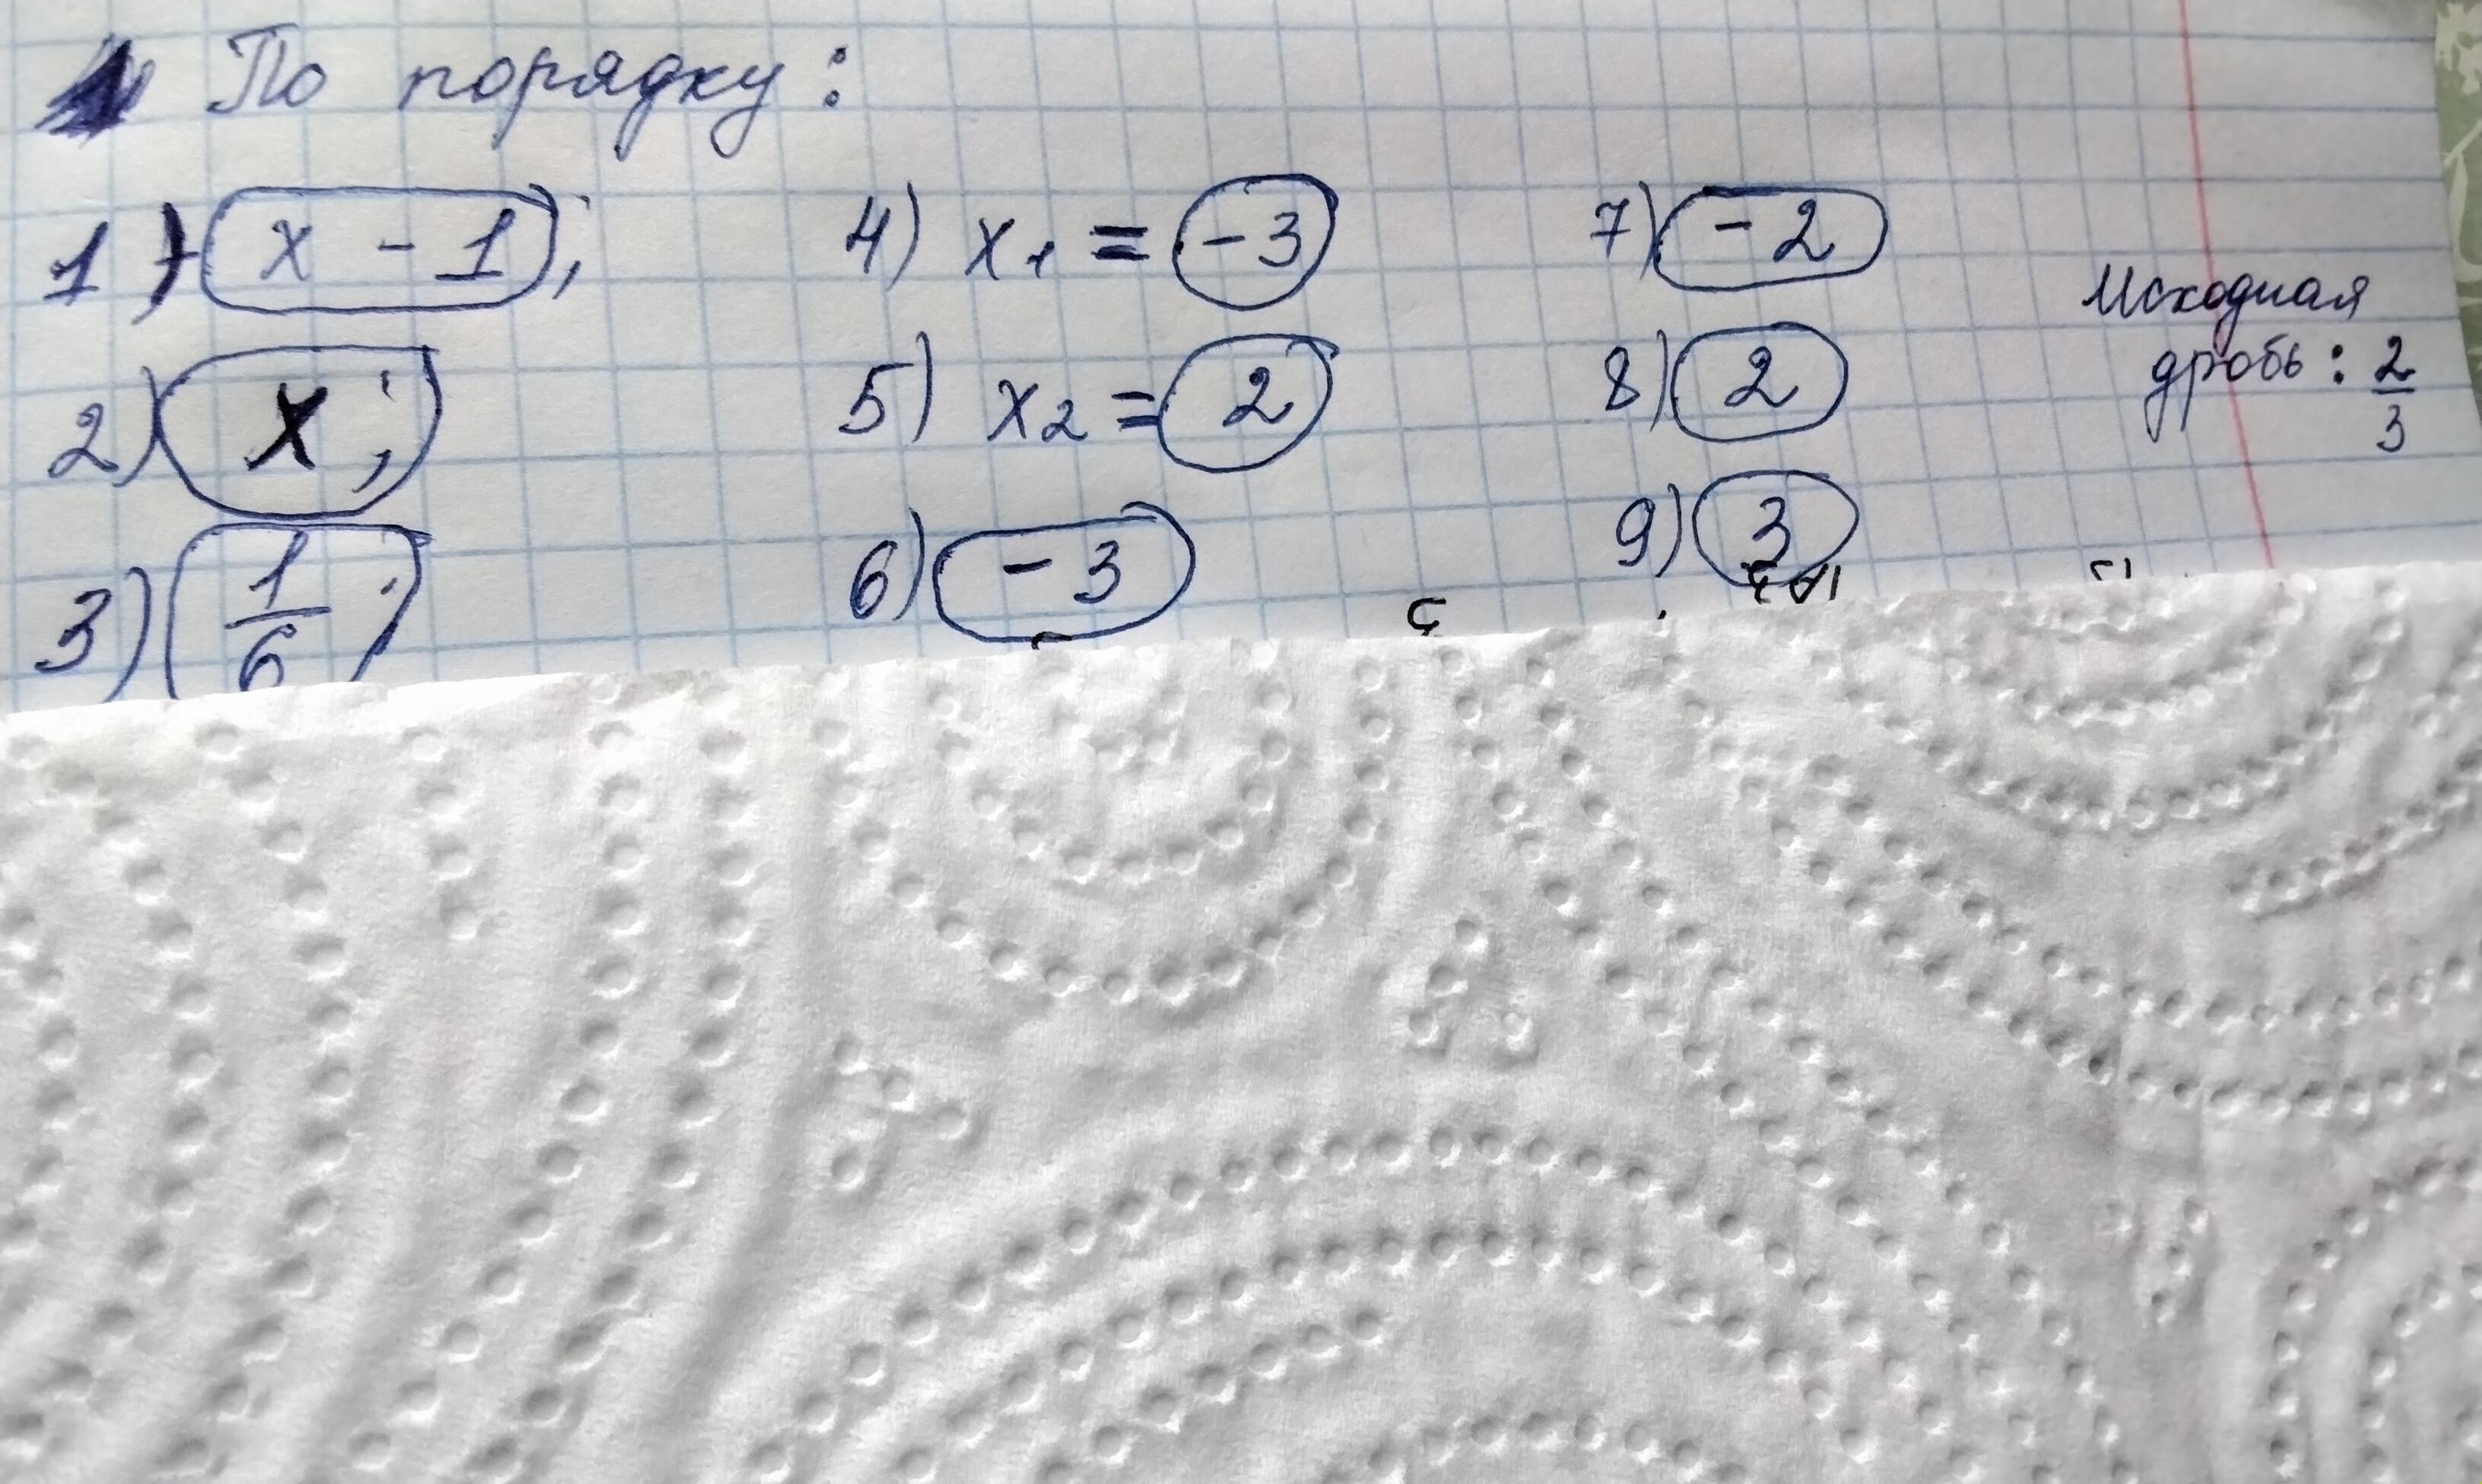 По порядку:
1) x - 1;
2) x;
3) 1/6;
4) x₁ = -3
5) x₂ = 2
6) -3
7) -2
8) 2
9) 3
Исходная
дробь: 2/3